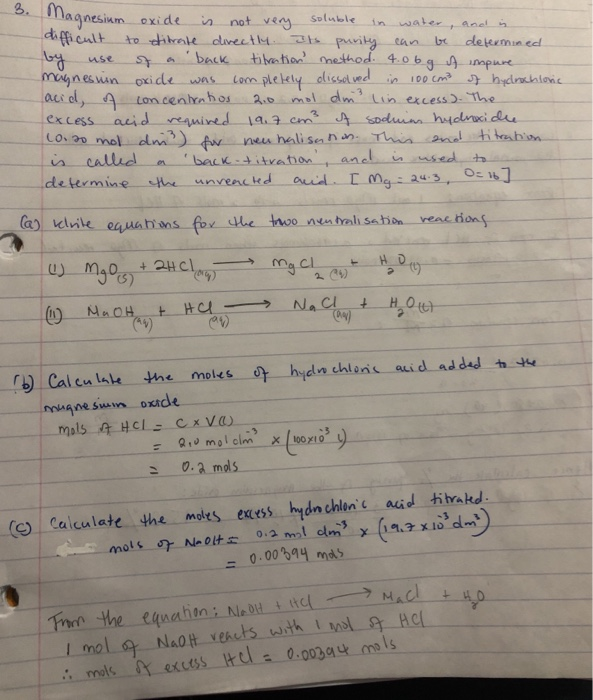 3. Magnesium oxide is not very soluble in water, and is
difficult to titrate directly. Its purity can be determined
by use of a 'back titration' method. 4.06 g of impure
magnesium oxide was completely dissolved in 100 cm³ of hydrochloric
acid, of concentration 2.0 mol dm⁻³ (in excess). The
excess acid required 19.7 cm³ of sodium hydroxide
(0.20 mol dm⁻³) for neutralisation. This 2nd titration
is called a 'back-titration', and is used to
determine the unreacted acid. [Mg = 24.3, O = 16]
(a) Write equations for the two neutralisation reactions
(i) MgO(s) + 2HCl(aq) → MgCl₂(aq) + H₂O(l)
(ii) NaOH(aq) + HCl(aq) → NaCl(aq) + H₂O(l)
(b) Calculate the moles of hydrochloric acid added to the
magnesium oxide
mols of HCl = C x V(l)
= 2.0 mol dm⁻³ x (100x10⁻³ l)
= 0.2 mols
(c) Calculate the moles excess hydrochloric acid titrated.
mols of NaOH = 0.2 mol dm⁻³ x (19.7 x 10⁻³ dm³)
= 0.00394 mols
From the equation: NaOH + HCl → NaCl + H₂O
1 mol of NaOH reacts with 1 mol of HCl
∴ mols of excess HCl = 0.00394 mols